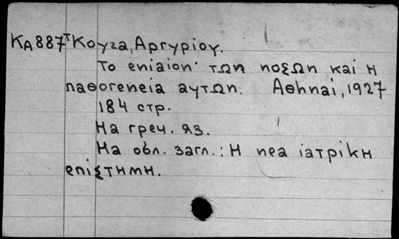 КА887т Коуга, Аргуріоу.
То еніаіоп· τωп поξωп каі н
пαθогепеіа аутωп. Аθhпаі, 1927
184 стр.
На греч. яз.
На обл. загл.: Н пеа іатрікн
епістнмн.